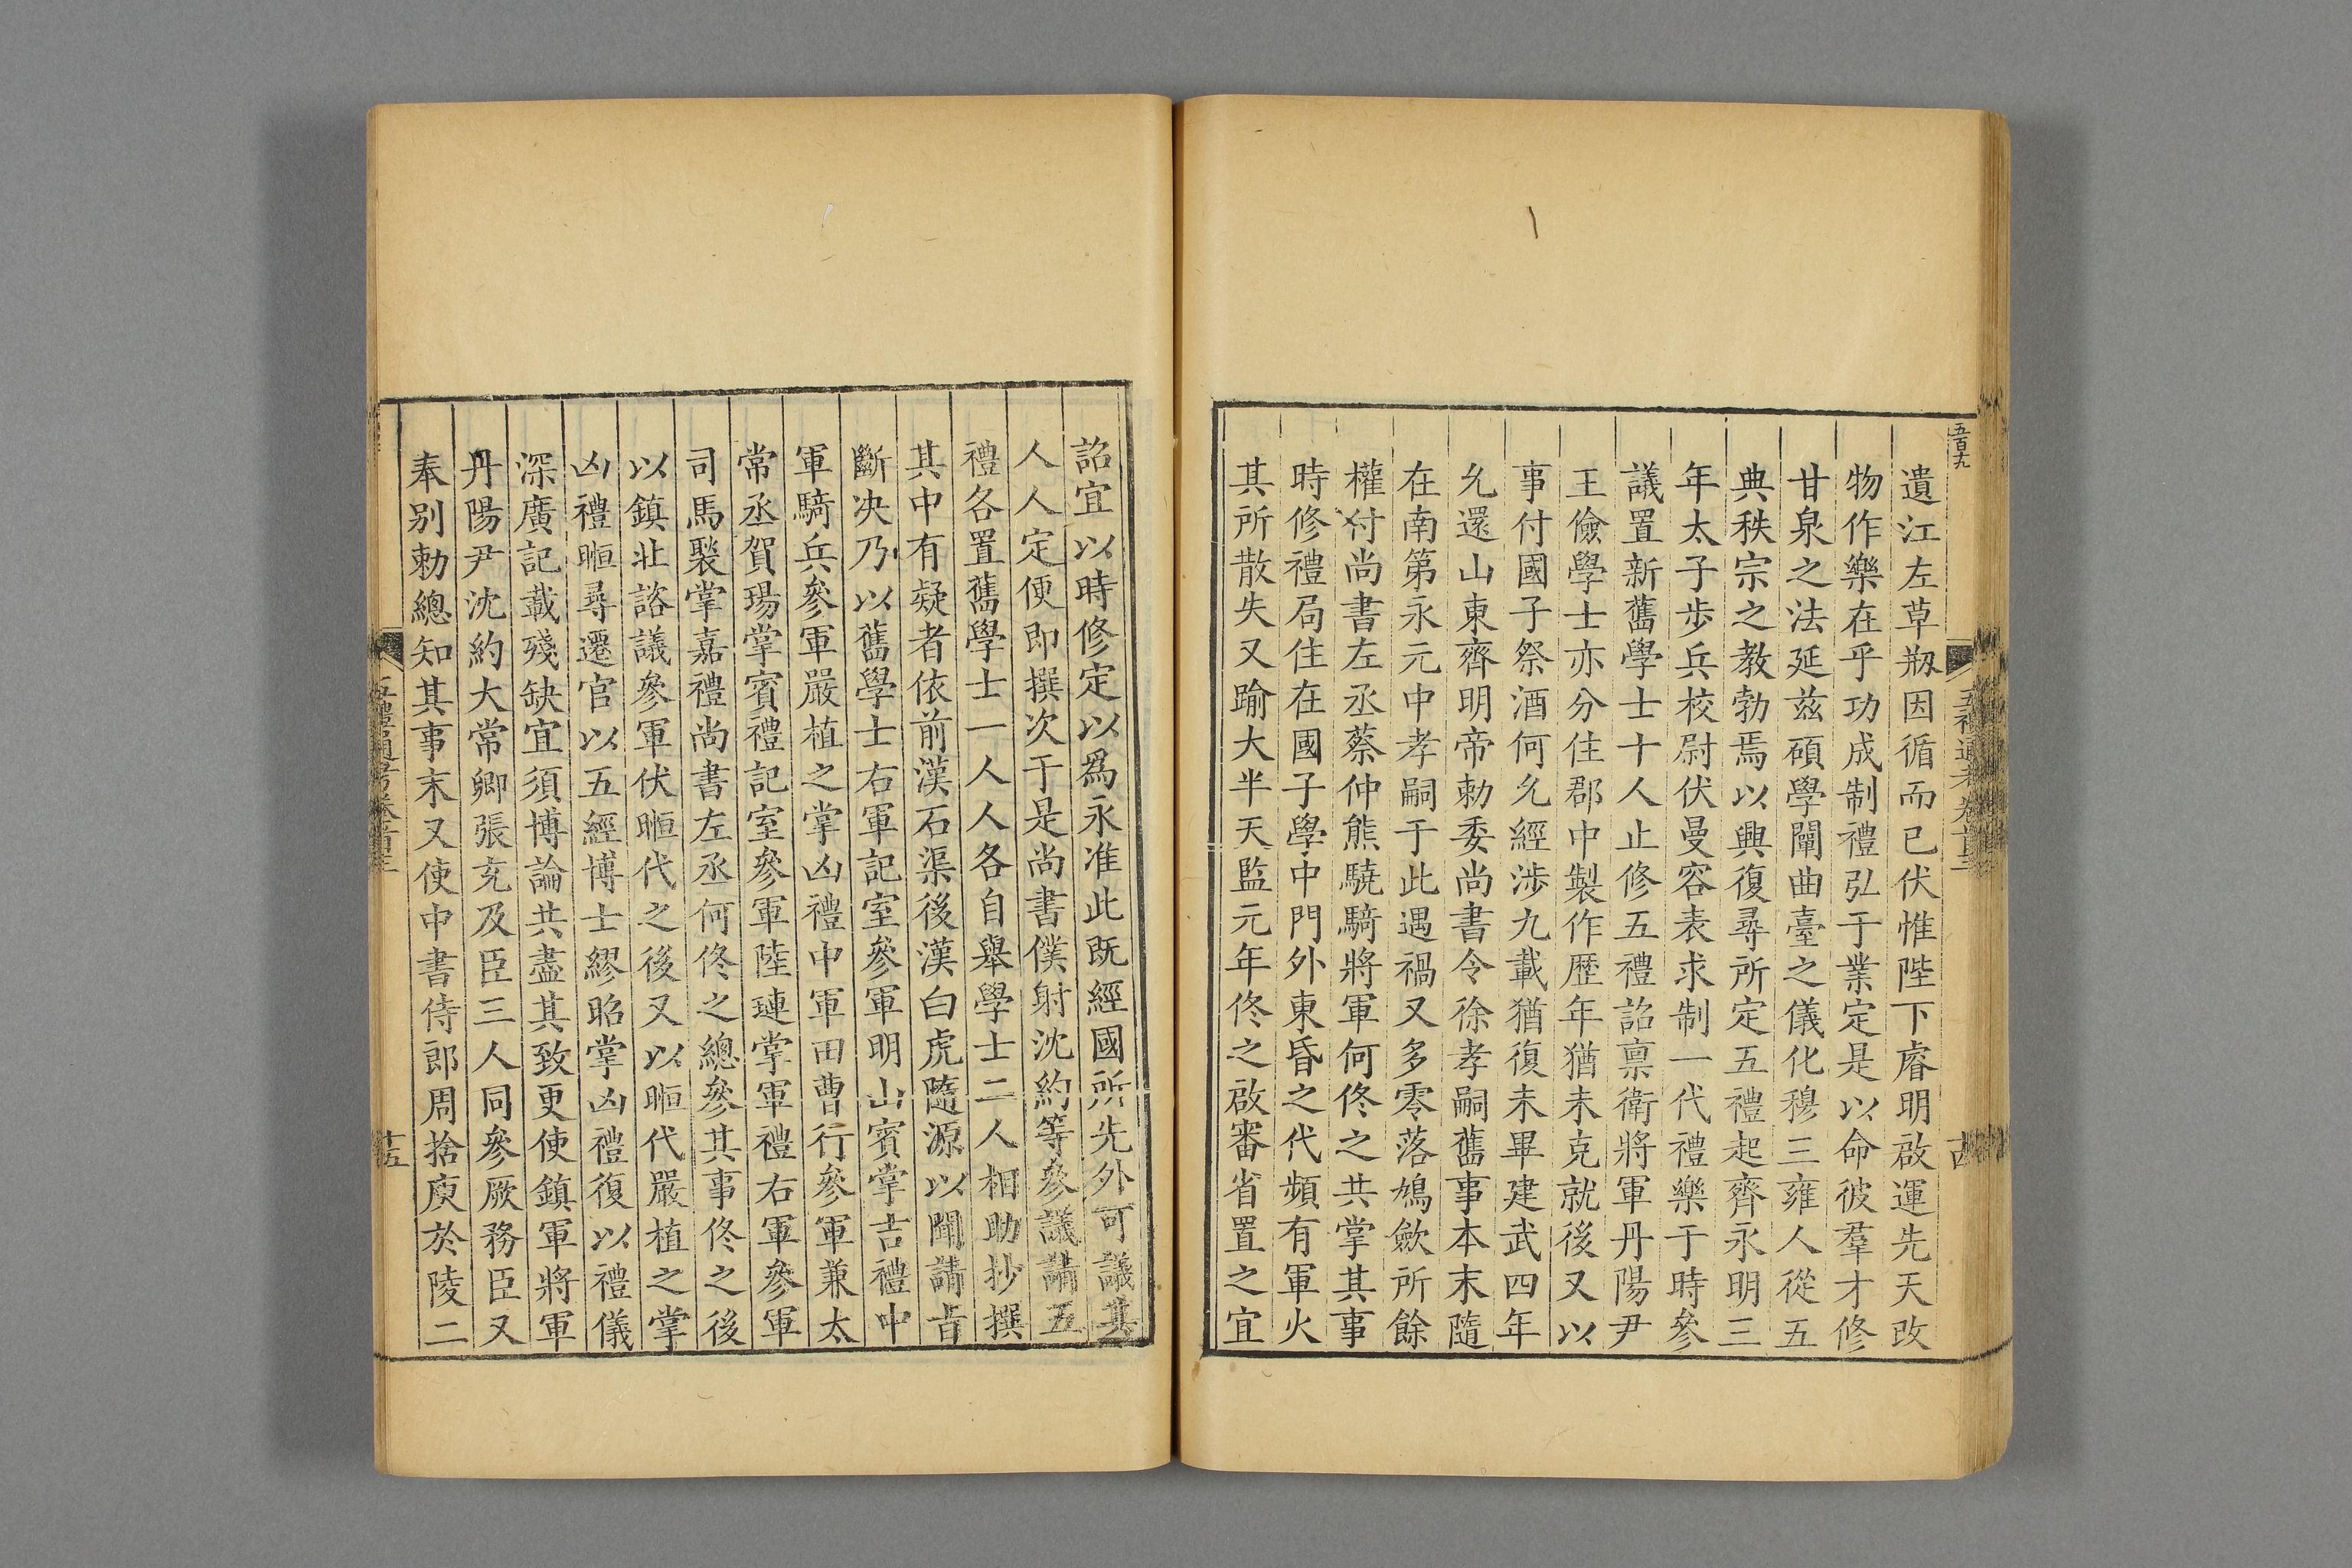 五百九
五禮通考卷首三
十四
遺江左草刱因循而已伏惟陛下睿明啟運先天改
物作樂在乎功成制禮弘于業定是以命彼羣才修
甘泉之法延兹碩學闡曲臺之儀化穆三雍人從五
典秩宗之教勃焉以興復尋所定五禮起齊永明三
年太子步兵校尉伏曼容表求制一代禮樂于時參
議置新舊學士十人止修五禮諮禀衛將軍丹陽尹
王儉學士亦分住郡中製作歷年猶未克就後又以
事付國子祭酒何允經涉九載猶復未畢建武四年
允還山東齊明帝勅委尚書令徐孝嗣舊事本末隨
在南第永元中孝嗣于此遇禍又多零落鳩歛所餘
權付尚書左丞蔡仲熊驍騎將軍何佟之共掌其事
時修禮局住在國子學中門外東昏之代頻有軍火
其所散失又踰大半天監元年佟之啟審省置之宜
詔宜以時修定以爲永准此既經國所先外可議其
人人定便即撰次于是尚書僕射沈約等參議請五
禮各置舊學士一人人各自舉學士二人相助抄撰
其中有疑者依前漢石渠後漢白虎隨源以聞請旨
斷決乃以舊學士右軍記室參軍明山賓掌吉禮中
軍騎兵參軍嚴植之掌凶禮中軍田曹行參軍兼太
常丞賀瑒掌賓禮記室參軍陸璉掌軍禮右軍參軍
司馬褧掌嘉禮尚書左丞何佟之總參其事佟之後
以鎮北諮議參軍伏暅代之後又以暅代嚴植之掌
凶禮暅尋遷官以五經博士繆昭掌凶禮復以禮儀
深廣記載殘缺宜須博論共盡其致更使鎮軍將軍
丹陽尹沈約大常卿張充及臣三人同參厥務臣又
奉别勅總知其事末又使中書侍郎周捨庾於陵二
五禮通考卷首三
十五